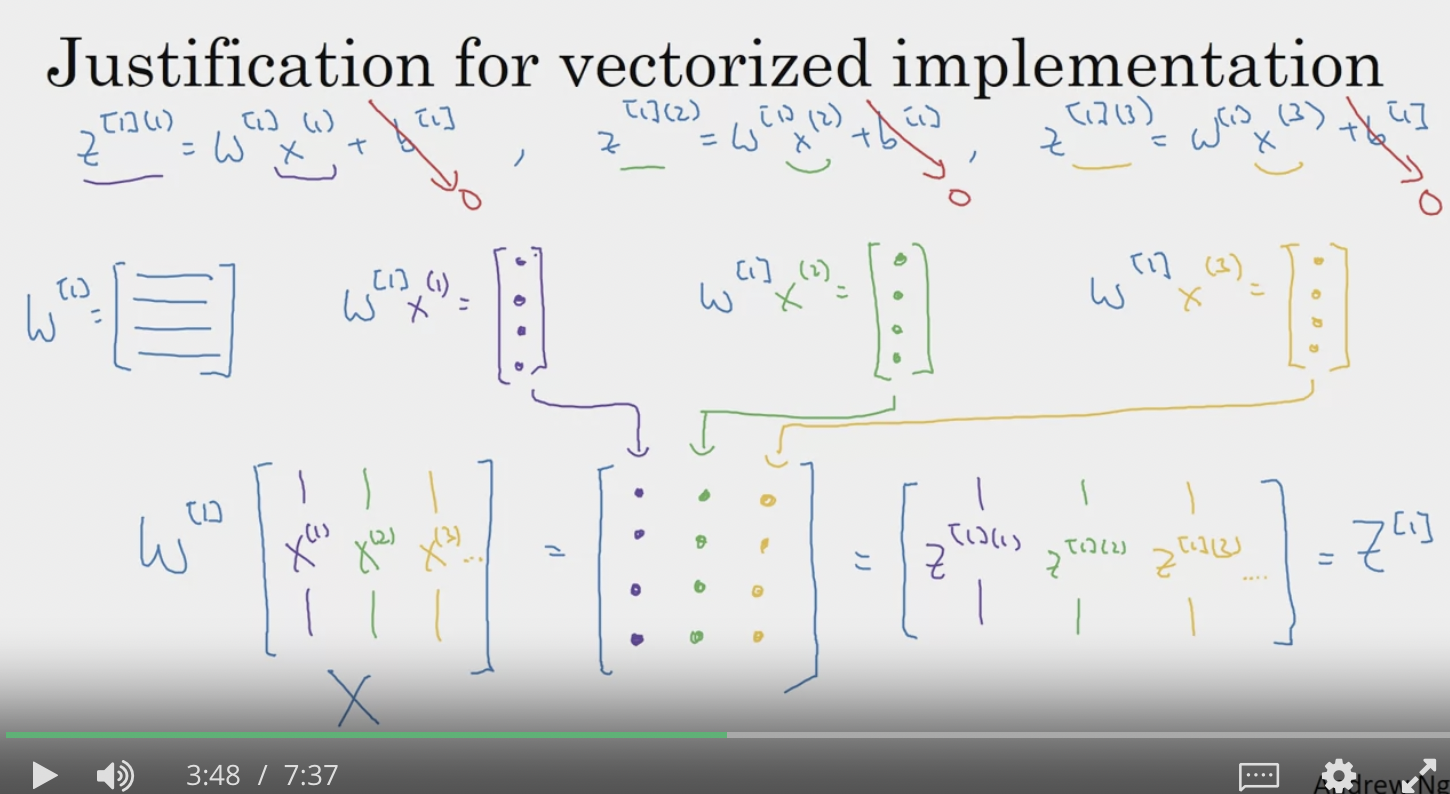 Justification for vectorized implementation
z^{[1](1)} = W^{[1]} x^{(1)} + b^{[1]} , z^{[1](2)} = W^{[1]} x^{(2)} + b^{[1]} , z^{[1](3)} = W^{[1]} x^{(3)} + b^{[1]}
0 0 0
W^{[1]} = [ ] W^{[1]} x^{(1)} = [ ] W^{[1]} x^{(2)} = [ ] W^{[1]} x^{(3)} = [ ]
W^{[1]} [ x^{(1)} x^{(2)} x^{(3)} ... ] = [ ] = [ z^{[1](1)} z^{[1](2)} z^{[1](3)} .... ] = Z^{[1]}
X
3:48 / 7:37
Andrew Ng